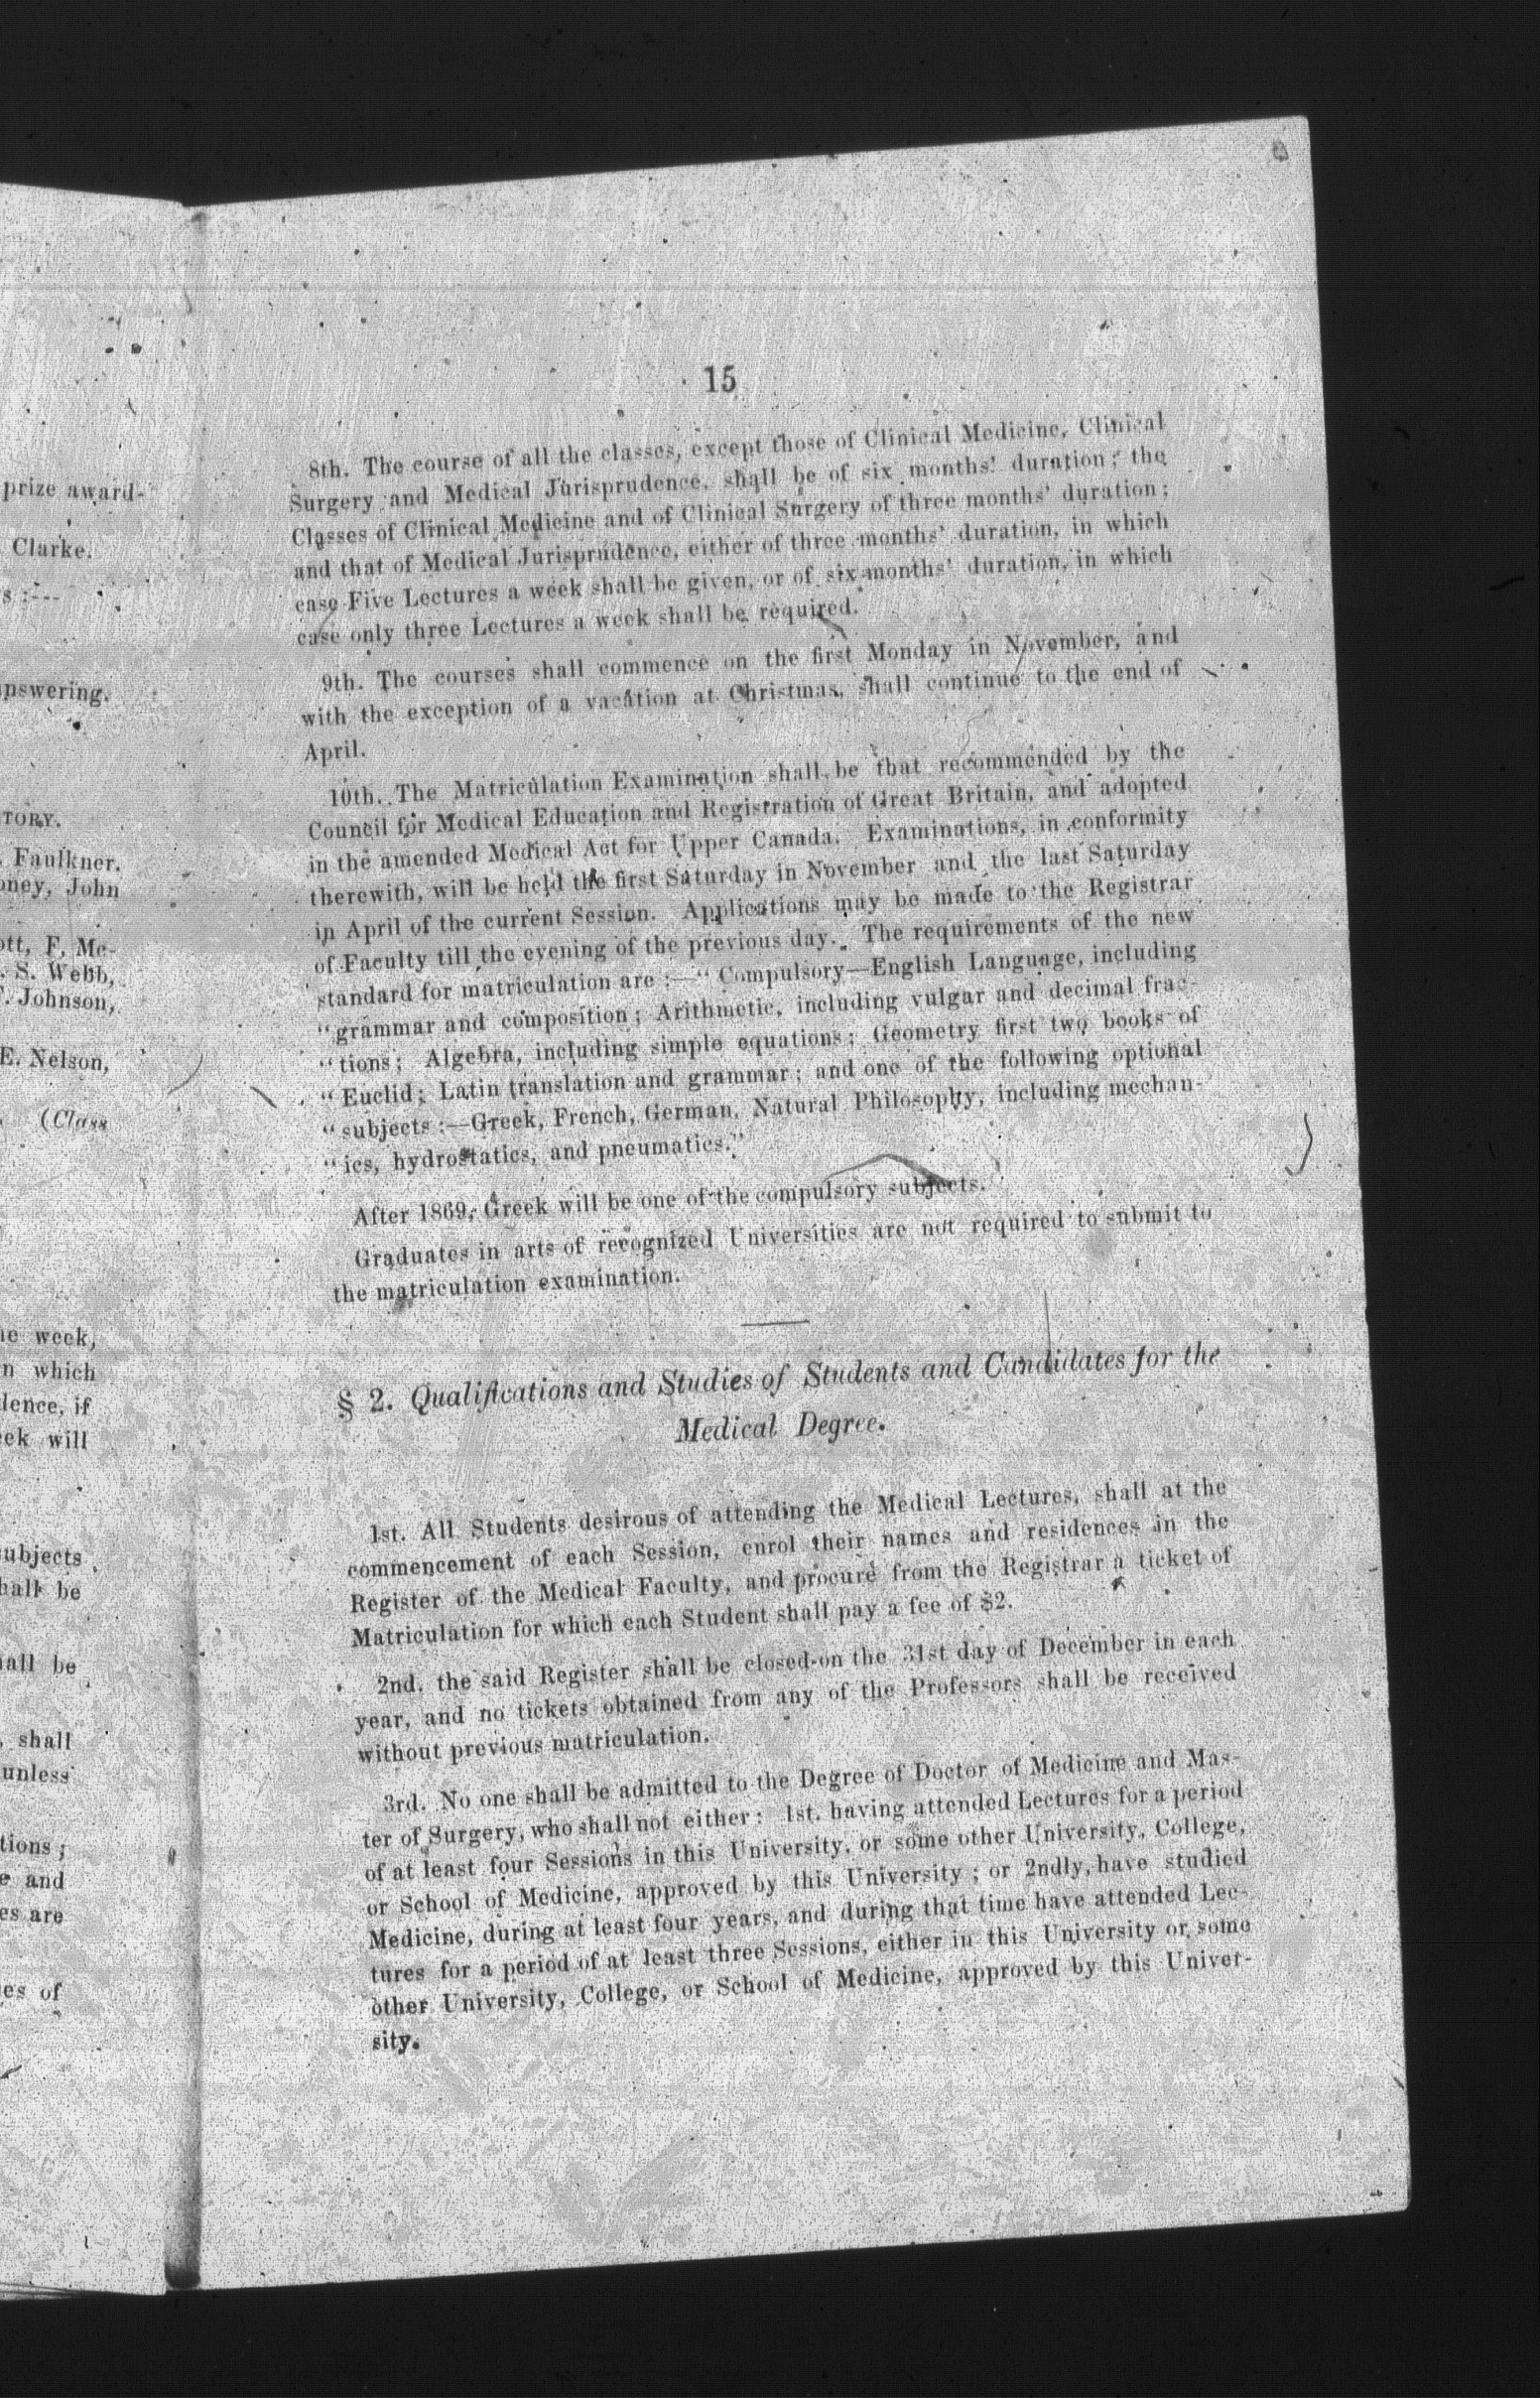 prize award-
Clarke.
s :---
nswering.
TORY.
Faulkner.
oney, John
ott, F. Mc-
S. Webb,
Johnson,
E. Nelson,
(Class
week,
n which
dence, if
ek will
subjects
hall be
hall be
, shall
unless
tions ;
e and
es are
es of
15
8th. The course of all the classes, except those of Clinical Medicine, Clinical
Surgery and Medical Jurisprudence, shall be of six months' duration; the
Classes of Clinical Medicine and of Clinical Surgery of three months' duration;
and that of Medical Jurisprudence, either of three months' duration, in which
case Five Lectures a week shall be given, or of six months' duration, in which
case only three Lectures a week shall be required.
9th. The courses shall commence on the first Monday in November, and
with the exception of a vacation at Christmas, shall continue to the end of
April.
10th. The Matriculation Examination shall be that recommended by the
Council for Medical Education and Registration of Great Britain, and adopted
in the amended Medical Act for Upper Canada. Examinations, in conformity
therewith, will be held the first Saturday in November and the last Saturday
in April of the current Session. Applications may be made to the Registrar
of Faculty till the evening of the previous day. The requirements of the new
standard for matriculation are :—" Compulsory—English Language, including
" grammar and composition; Arithmetic, including vulgar and decimal frac-
" tions; Algebra, including simple equations; Geometry first two books of
" Euclid; Latin translation and grammar; and one of the following optional
" subjects :—Greek, French, German, Natural Philosophy, including mechan-
" ics, hydrostatics, and pneumatics."
After 1869, Greek will be one of the compulsory subjects.
Graduates in arts of recognized Universities are not required to submit to
the matriculation examination.
§ 2. Qualifications and Studies of Students and Candidates for the
Medical Degree.
1st. All Students desirous of attending the Medical Lectures, shall at the
commencement of each Session, enrol their names and residences in the
Register of the Medical Faculty, and procure from the Registrar a ticket of
Matriculation for which each Student shall pay a fee of $2.
2nd. the said Register shall be closed on the 31st day of December in each
year, and no tickets obtained from any of the Professors shall be received
without previous matriculation.
3rd. No one shall be admitted to the Degree of Doctor of Medicine and Mas-
ter of Surgery, who shall not either: 1st. having attended Lectures for a period
of at least four Sessions in this University, or some other University, College,
or School of Medicine, approved by this University ; or 2ndly, have studied
Medicine, during at least four years, and during that time have attended Lec-
tures for a period of at least three Sessions, either in this University or some
other University, College, or School of Medicine, approved by this Univer-
sity.